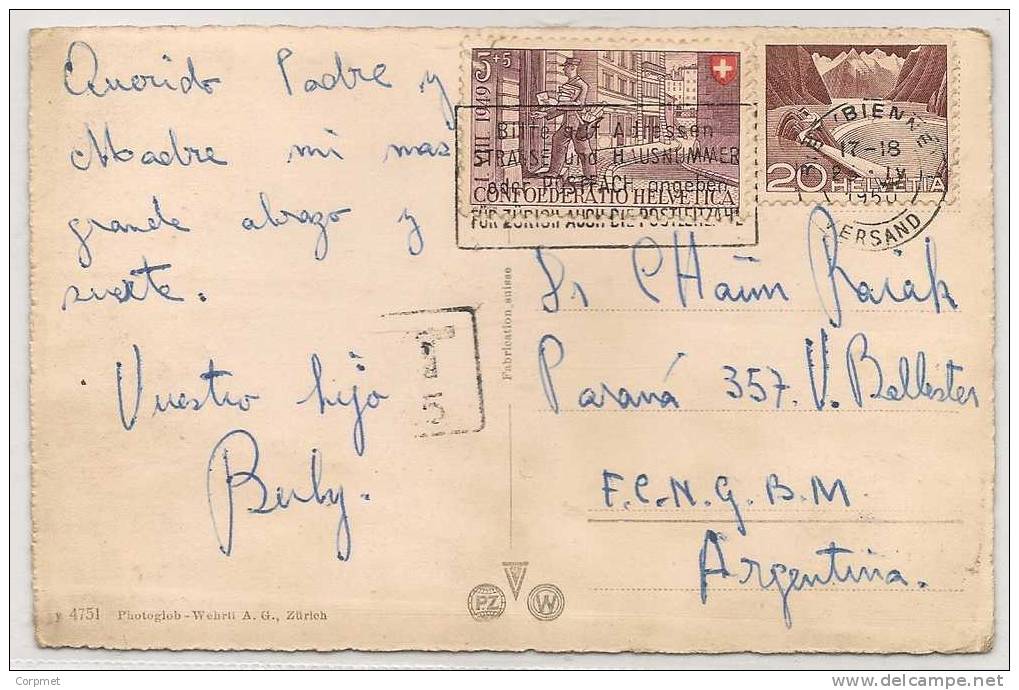 Querido Padre y
Madre mi mas
grande abrazo y
suerte.
Vuestro hijo
Berly.
T
5
5+5
1. VIII. 1949
CONFOEDERATIO HELVETICA
Bitte auf Adressen
STRASSE und HAUSNUMMER
oder POSTFACH angeben
FÜR ZÜRICH AUCH DIE POSTLEITZAHL
20 HELVETIA
BIENNE
17-18
IV
1950
VERSAND
Sr CHaim Raiak
Paraná 357. V. Ballester
F.C.N.G.B.M
Argentina.
Fabrication suisse
4751 Photoglob-Wehrli A. G., Zürich
PZ W
Corpmet
delcampe.net